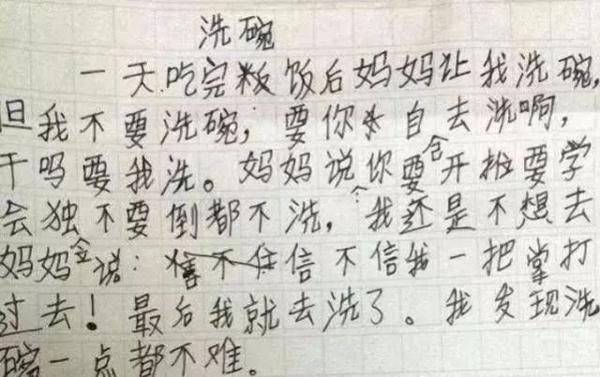 洗碗
一天吃完粄饭后妈妈让我洗碗,
但我不要洗碗,要你自去洗啊,
干吗要我洗。妈妈说你要会开拉要学
会独不要倒都不洗,我还是不想去
妈妈会说:信不信我一把掌打
过去!最后我就去洗了。我发现洗
碗一点都不难。